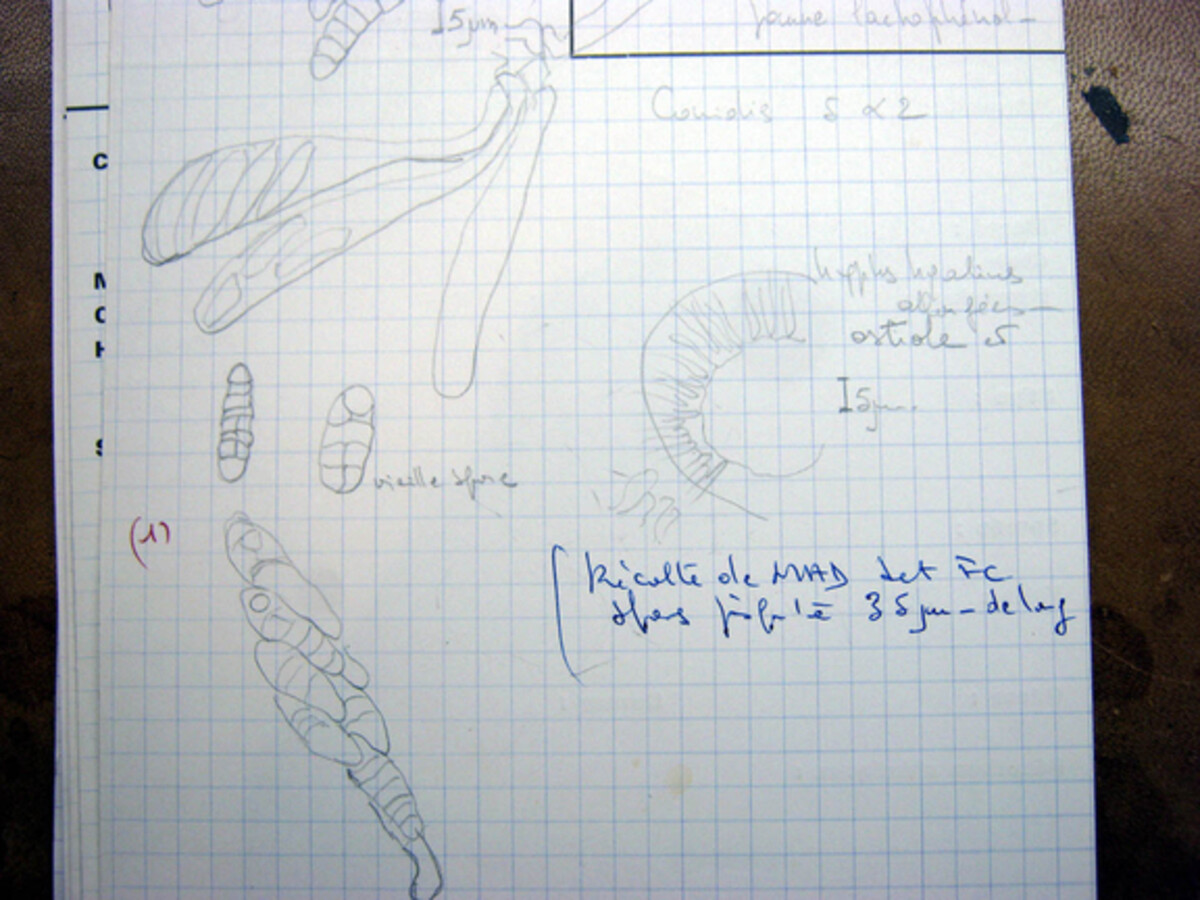 I 5µm
jaune lactophénol
Conidies 5 x 2
hyphes hyalines
allongées
ostiole 5
I 5µm.
vieille spore
(1)
Récolte de MAD det FC
spores jusqu'à 35µm de long
C
M
C
H
S